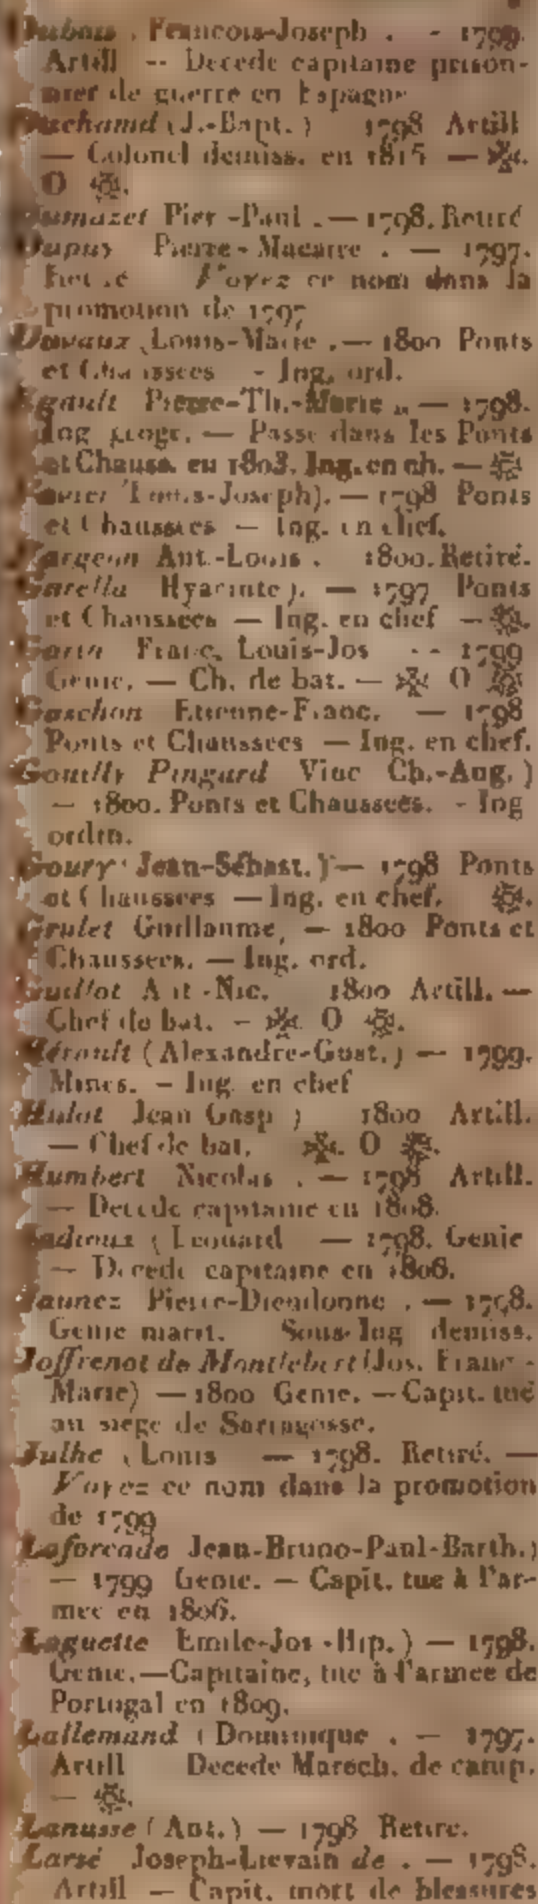 Dubois, François-Joseph. - 1799.
Artill -- Decede capitaine prison-
nier de guerre en Espagne
Duchamd (J.-Bapt.) 1798 Artill
— Colonel demiss. en 1815 —
O
Dumazet Pier-Paul. — 1798. Retiré
Dupuy Pierre-Macaire. — 1797.
Retiré Voyez ce nom dans la
promotion de 1797
Duvaux (Louis-Marie. — 1800 Ponts
et Chaussees - Ing. ord.
Egault Pierre-Th.-Marie — 1798.
Ing geogr. — Passe dans les Ponts
et Chauss. en 1803. Ing. en ch. —
(Louis-Joseph). — 1798 Ponts
et Chaussees — Ing. en chef.
Fargeon Ant.-Louis. 1800. Retiré.
Garella Hyacinte). — 1797 Ponts
et Chaussees — Ing. en chef —
Garin Franc. Louis-Jos -- 1799
Genie. — Ch. de bat. — O
Gaschon Etienne-Franc. — 1798
Ponts et Chaussees — Ing. en chef.
Gouilly Pingard Vinc Ch.-Aug.)
— 1800. Ponts et Chaussees. - Ing
ordin.
Goury (Jean-Sébast.) — 1798 Ponts
et Chaussees — Ing. en chef.
Grulet Guillaume, — 1800 Ponts et
Chaussees. — Ing. ord.
Guillot Ant-Nic. 1800 Artill. —
Chef de bat. - O
Hérault (Alexandre-Gust.) — 1799.
Mines. - Ing. en chef
Hulot Jean Gasp) 1800 Artill.
— Chef de bat. O
Humbert Nicolas. — 1798 Artill.
— Decede capitaine en 1808.
Jadioux (Leonard — 1798. Genie
— Decede capitaine en 1806.
Jaunez Pierre-Dieudonne. — 1798.
Genie marit. Sous-Ing demiss.
Joffrenot de Montlebert (Jos. Franc-
Marie) — 1800 Genie. — Capit. tué
au siege de Sarragosse.
Julhe (Louis — 1798. Retiré. —
Voyez ce nom dans la promotion
de 1799
Laforcade Jean-Bruno-Paul-Barth.)
— 1799 Genie. — Capit. tue à l'ar-
mee en 1806.
Laguette Emile-Jos-Hip.) — 1798.
Genie. — Capitaine, tue à l'armee de
Portugal en 1809.
Lallemand (Dominique. — 1797.
Artill Decede Marech. de camp.
—
Lanusse (Ant.) — 1798 Retire.
Larsé Joseph-Lievain de. — 1798.
Artill — Capit. mort de blessures